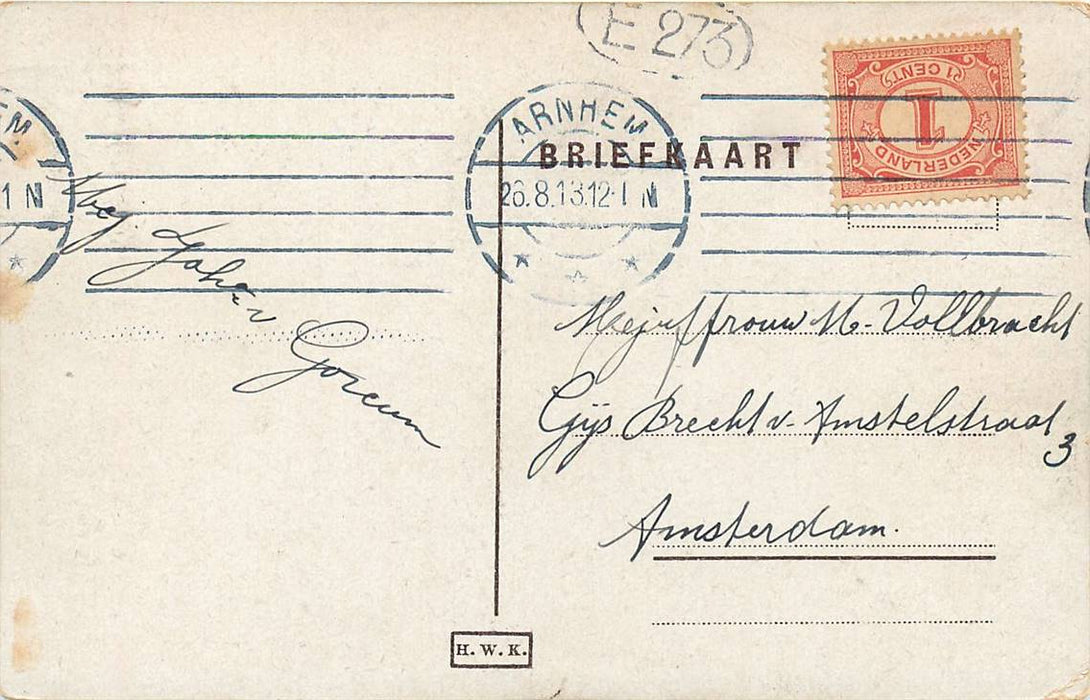 E 273
ARNHEM
26.8.13.12-1 N
M.
1 N
BRIEFKAART
1 CENT
1
NEDERLAND
Johan
Gorcum
Mejuffrouw M. Vollbracht
Gijs Brecht v. Amstelstraat
3
Amsterdam.
H. W. K.